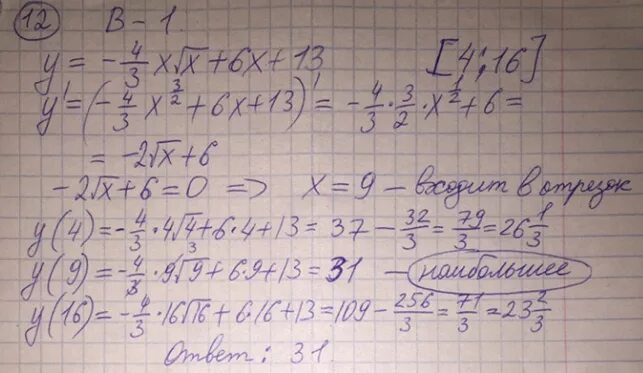 12 В - 1.
y = -4/3 x√x + 6x + 13 [4; 16]
y' = (-4/3 x^(3/2) + 6x + 13)' = -4/3 · 3/2 · x^(1/2) + 6 =
= -2√x + 6
-2√x + 6 = 0 => x = 9 – входит в отрезок
y(4) = -4/3 · 4√4 + 6·4 + 13 = 37 - 32/3 = 79/3 = 26 1/3
y(9) = -4/3 · 9√9 + 6·9 + 13 = 31 – наибольшее
y(16) = -4/3 · 16√16 + 6·16 + 13 = 109 - 256/3 = 71/3 = 23 2/3
Ответ: 31